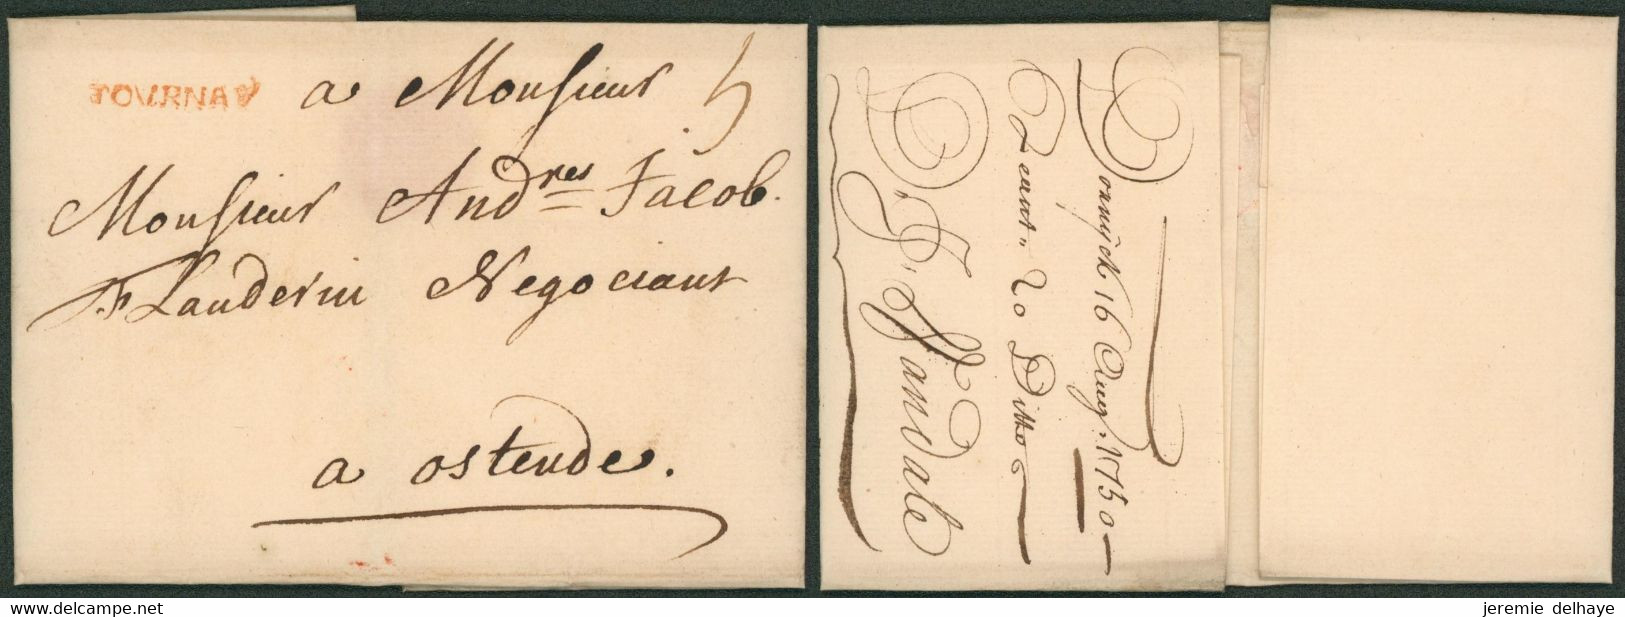 TOURNAY
a Monsieur 5
Monsieur And^res Jacob.
Flanderin Negociant
a ostende.
Dornijck 16 Aug: 1750
Reant. 20 Ditto
D. J. VanDale
www.delcampe.net
jeremie delhaye